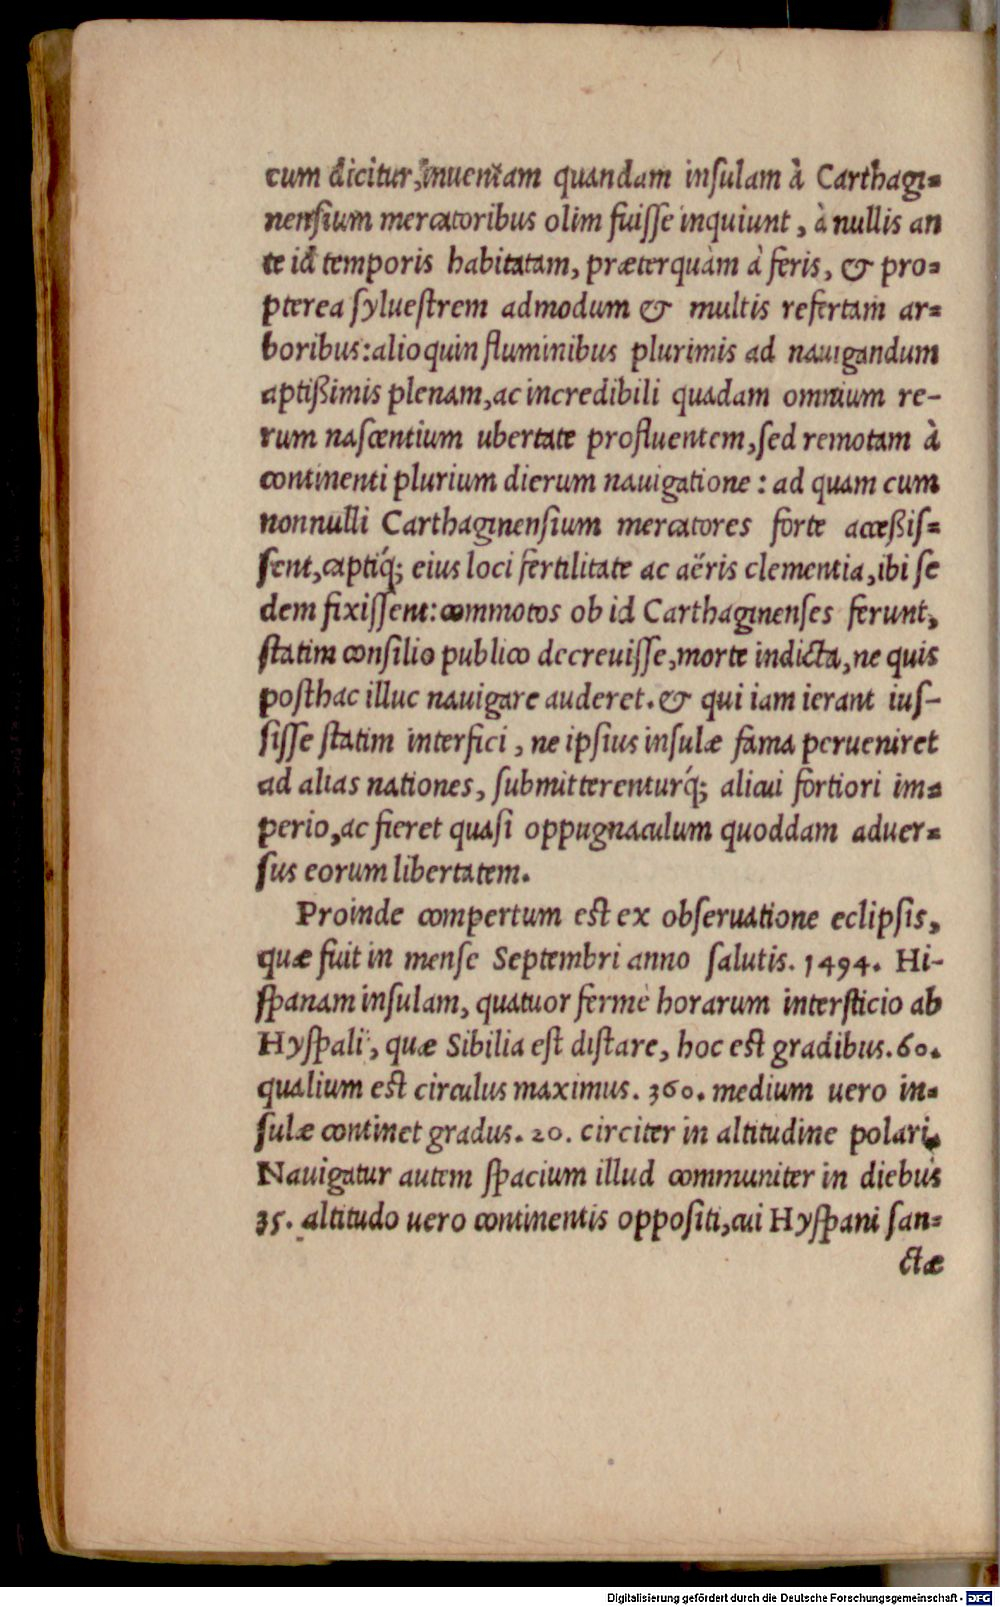 cum dicitur, inuentam quandam inſulam à Carthagi-
nenſium mercatoribus olim fuiſſe inquiunt, à nullis an
te id temporis habitatam, præterquàm à feris, & pro-
pterea ſylueſtrem admodum & multis refertam ar-
boribus: alioquin fluminibus plurimis ad nauigandum
aptißimis plenam, ac incredibili quadam omnium re-
rum naſcentium ubertate profluentem, ſed remotam à
continenti plurium dierum nauigatione: ad quam cum
nonnulli Carthaginenſium mercatores forte acceßiſ-
ſent, captiq́; eius loci fertilitate ac aëris clementia, ibi ſe
dem fixiſſent: commotos ob id Carthaginenſes ferunt,
ſtatim conſilio publico decreuiſſe, morte indicta, ne quis
poſthac illuc nauigare auderet. & qui iam ierant iuſ-
ſiſſe ſtatim interfici, ne ipſius inſulæ fama perueniret
ad alias nationes, ſubmitterenturq́; alicui fortiori im-
perio, ac fieret quaſi oppugnaculum quoddam aduer-
ſus eorum libertatem.
Proinde compertum eſt ex obſeruatione eclipſis,
quæ fuit in menſe Septembri anno ſalutis. 1494. Hi-
ſpanam inſulam, quatuor fermè horarum interſticio ab
Hyſpali, quæ Sibilia eſt diſtare, hoc eſt gradibus. 60.
qualium eſt circulus maximus. 360. medium uero in-
ſulæ continet gradus. 20. circiter in altitudine polari.
Nauigatur autem ſpacium illud communiter in diebus
35. altitudo uero continentis oppoſiti, cui Hyſpani ſan-
ctæ
Digitalisierung gefördert durch die Deutsche Forschungsgemeinschaft - DFG